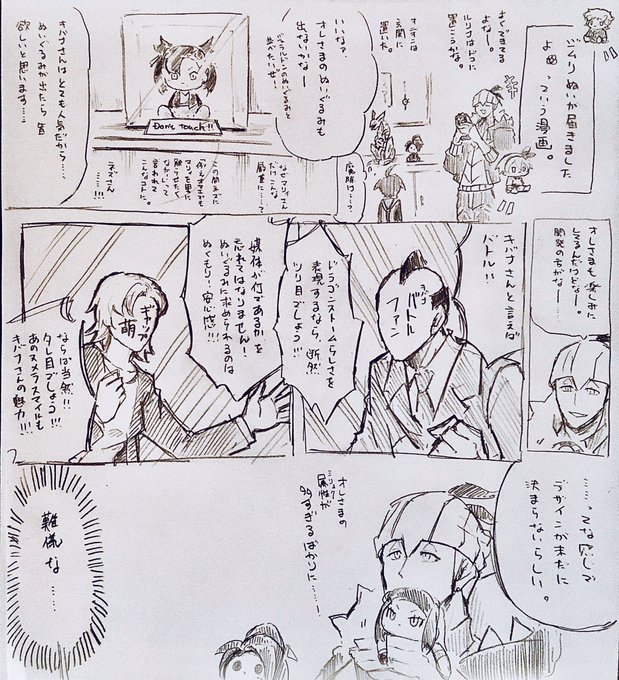 ジムリぬいが届きました
よぉっていう漫画。
よくできてる
よなー。
ルリナはドコに
置こうかな。
オニオンは
玄関に
置いた。
いいな?
オレさまのぬいぐるみも
出ないかなー
ジュラルドンのぬいぐるみと
並べたいぜ!!
Don't Touch!!
なぜマリィさん
だけこんな
厳重に……?
この間ネズに
「例えオマエでも
マリィを男に
触らせたく
ない」って
言われて
こんなコトに。
ネズさん
……!!!
キバナさんは
とても人気だから……、
ぬいぐるみが出たら皆
欲しいと思います……。
オレさまも楽しみに
してるんだけどなー。
開発の方がなー……。
キバナさんと言えば
バトル!!
バトル
ファン
ドラゴンストームらしさを
表現するなら、断然
ツリ目でしょう!!!
媒体が何であるかを
忘れてはなりません!
ぬいぐるみに求められるのは
ぬくもり!安心感!!!
ギャップ
萌
ならば当然!!
タレ目でしょう!!!
あのヌメラスマイルも
キバナさんの魅力!!!
……ってな感じで
デザインが未だに
決まらないらしい。
オレさまの
属性が
多すぎるばかりに……ー
難儀な……